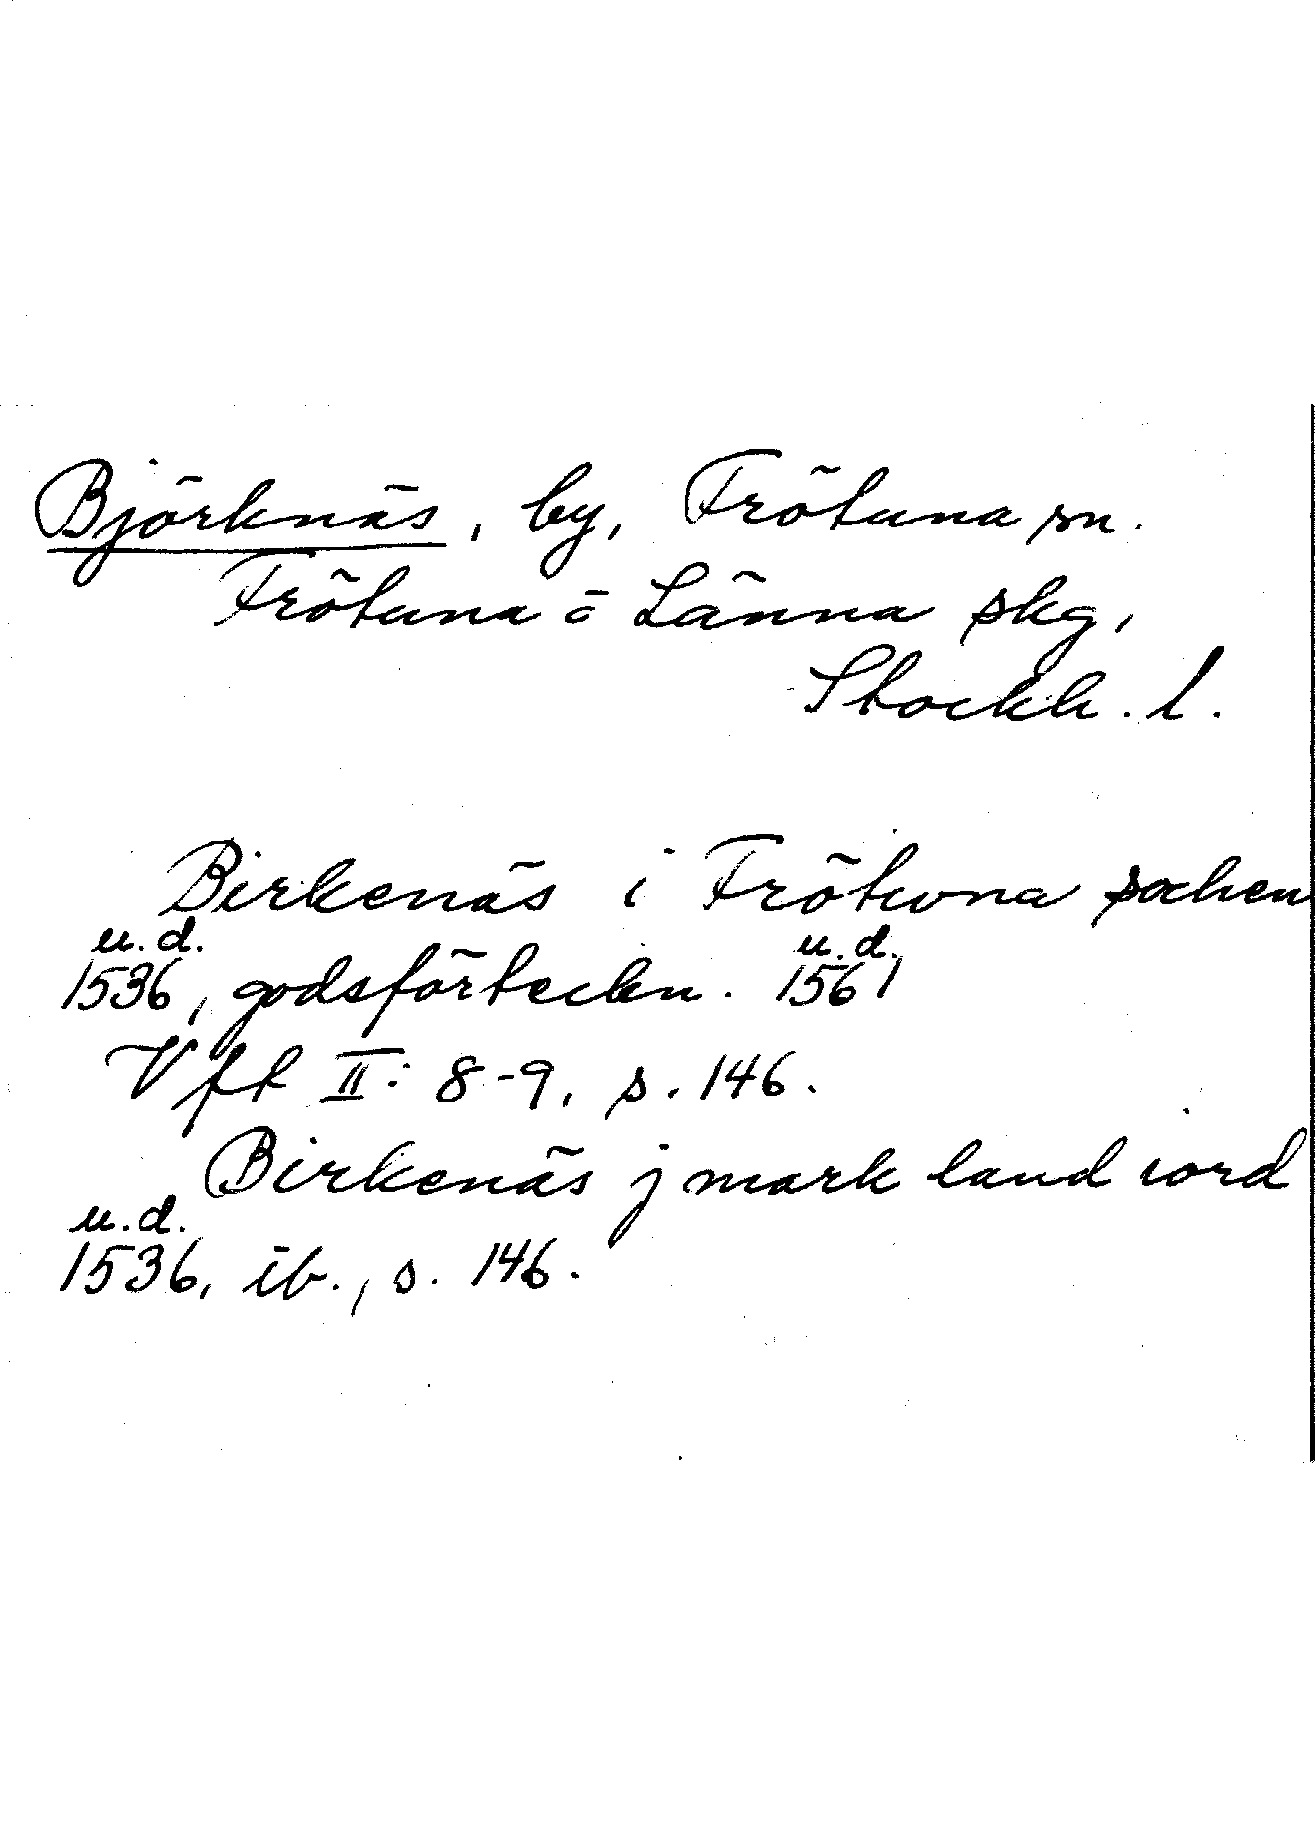 Björknäs, by, Frötuna sn.
Frötuna o Länna skg,
Stockh. l.
Birkenäs i Frötwna sochen
u.d. u.d.
1536, godsförteckn. 1561
Vft II: 8-9, s. 146.
Birkenäs j mark land iord
u.d.
1536, ib., s. 146.